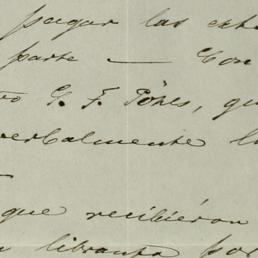 pagar las
parte — Con
G. F. Pöhls, qu
verbalmente l
que recibiéron
libranza por